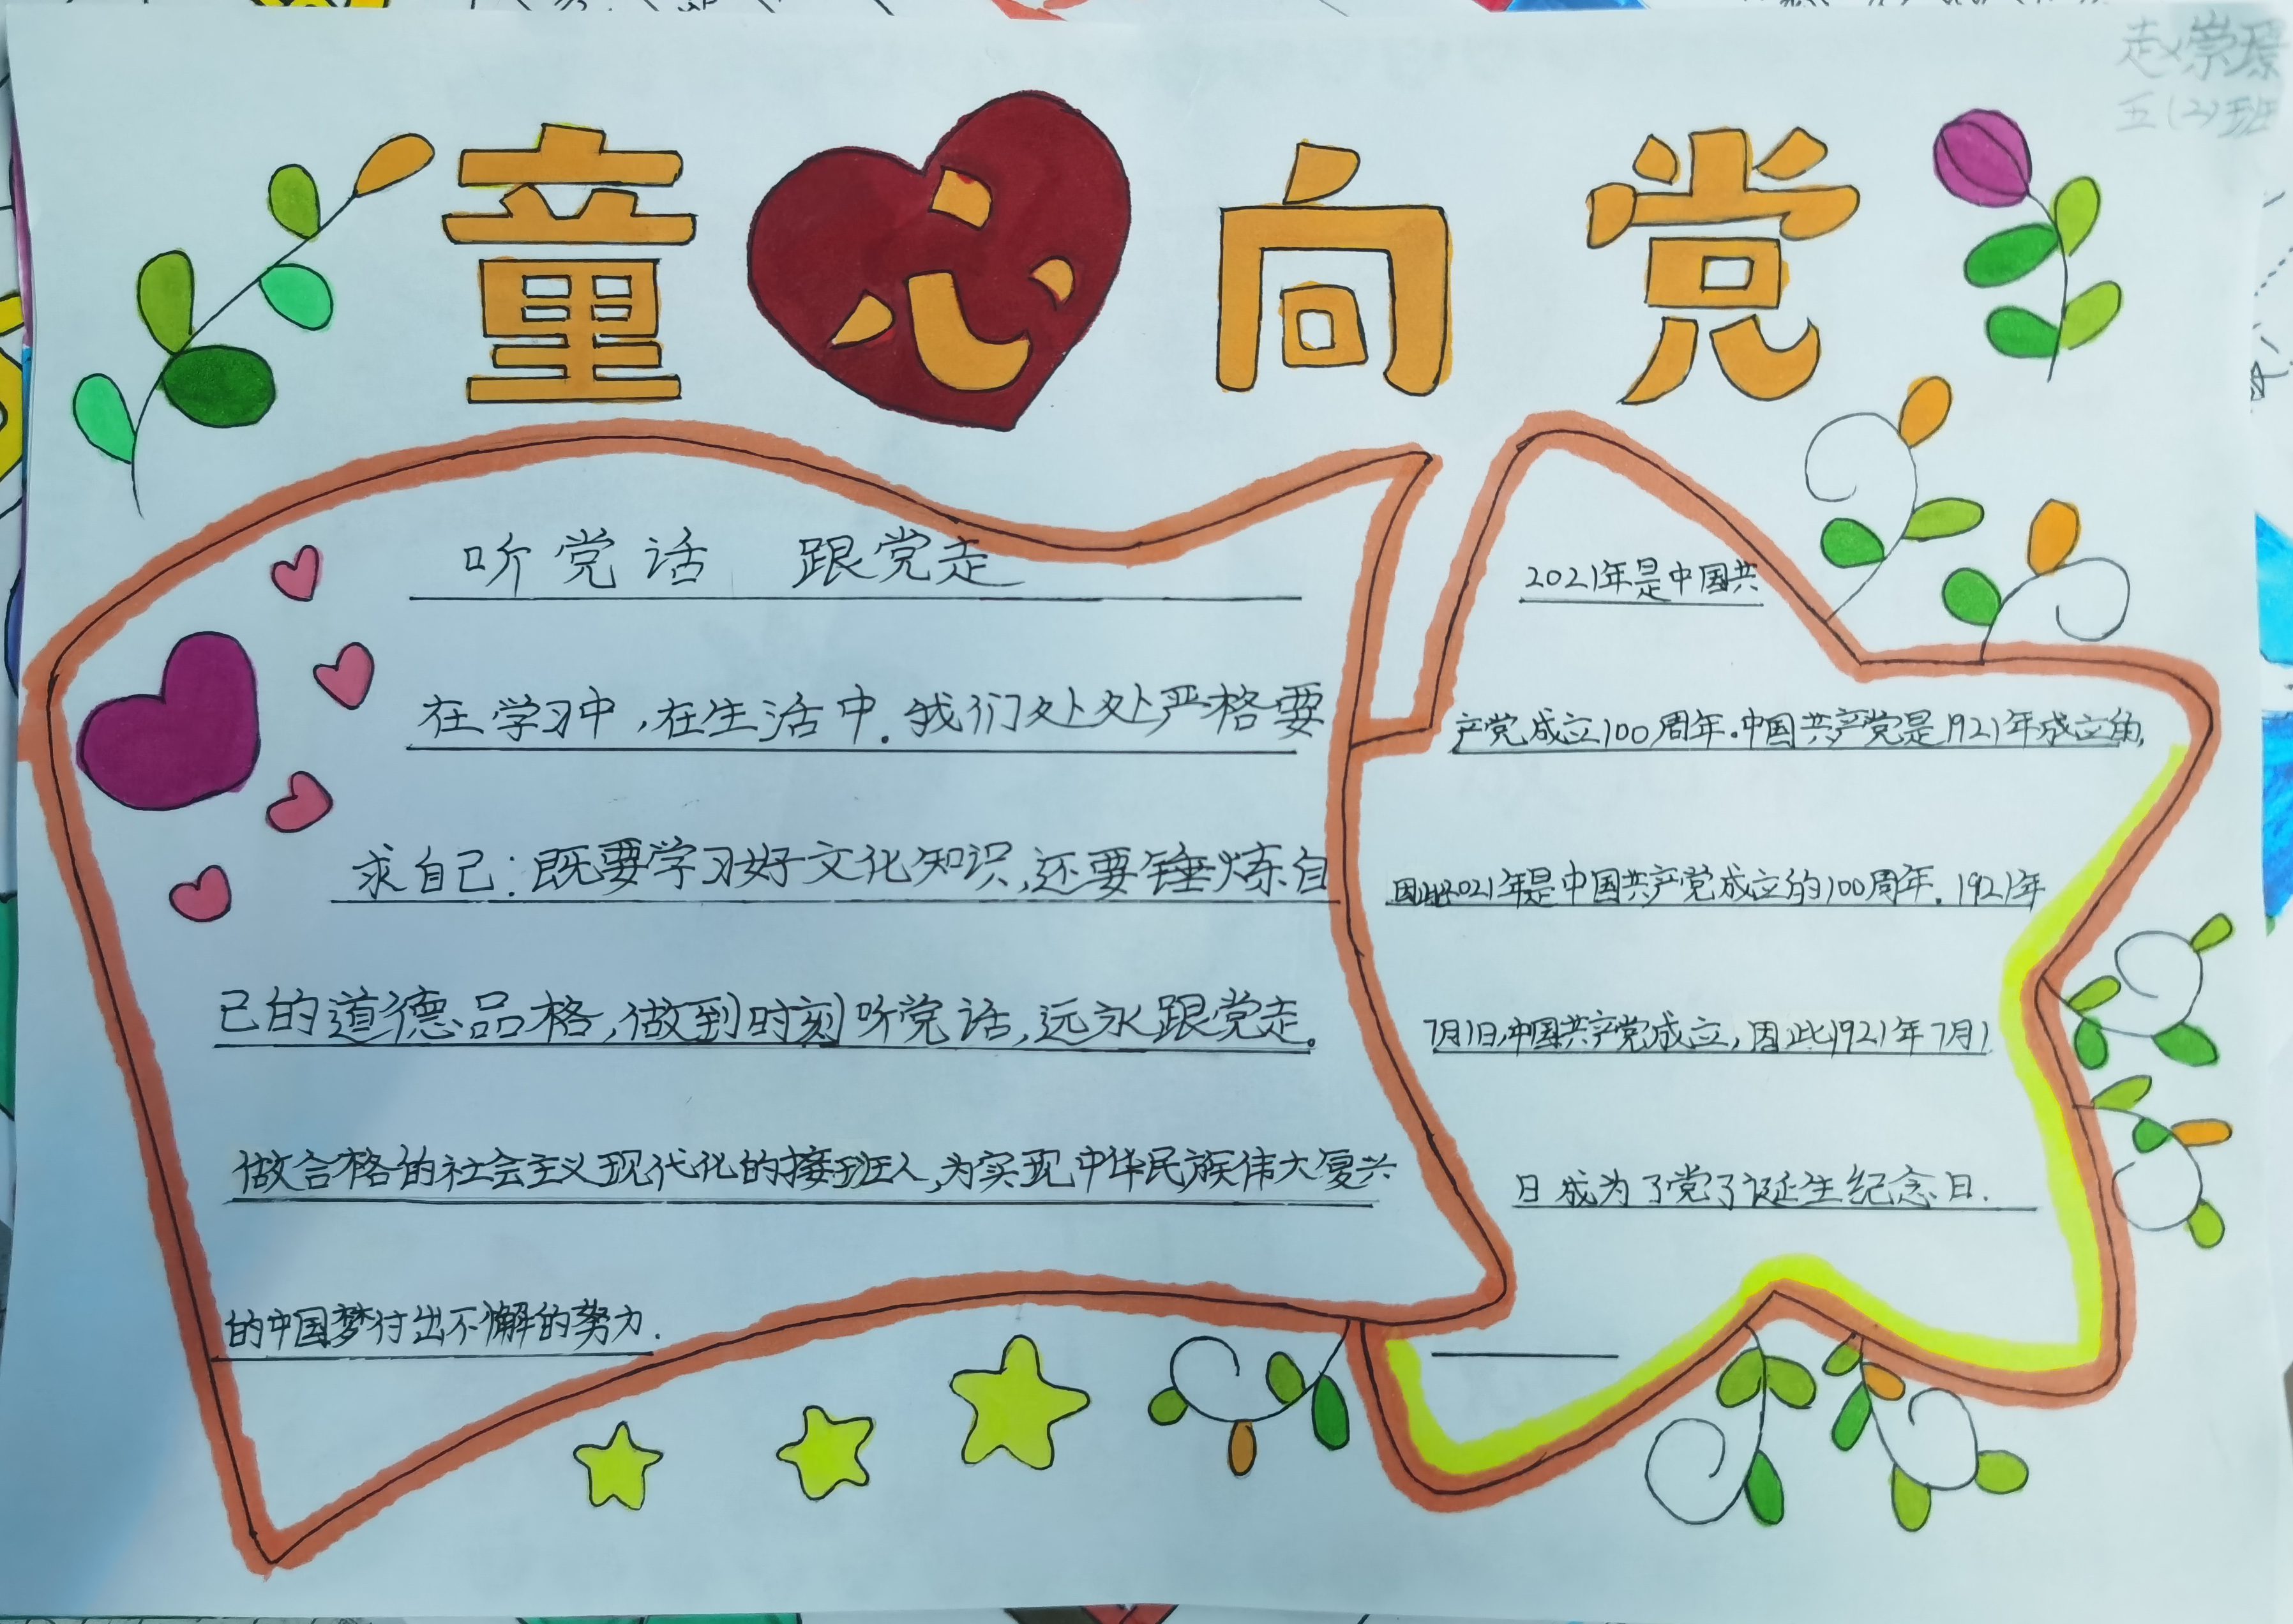 赵崇璟
五(2)班
童心向党
听党话 跟党走
在学习中,在生活中.我们处处严格要
求自己:既要学习好文化知识,还要锤炼自
己的道德品格,做到时刻听党话,远永跟党走。
做合格的社会主义现代化的接班人,为实现中华民族伟大复兴
的中国梦付出不懈的努力.
2021年是中国共
产党成立100周年.中国共产党是1921年成立的,
因此2021年是中国共产党成立的100周年.1921年
7月1日,中国共产党成立,因此1921年7月1
日成为了党了诞生纪念日.